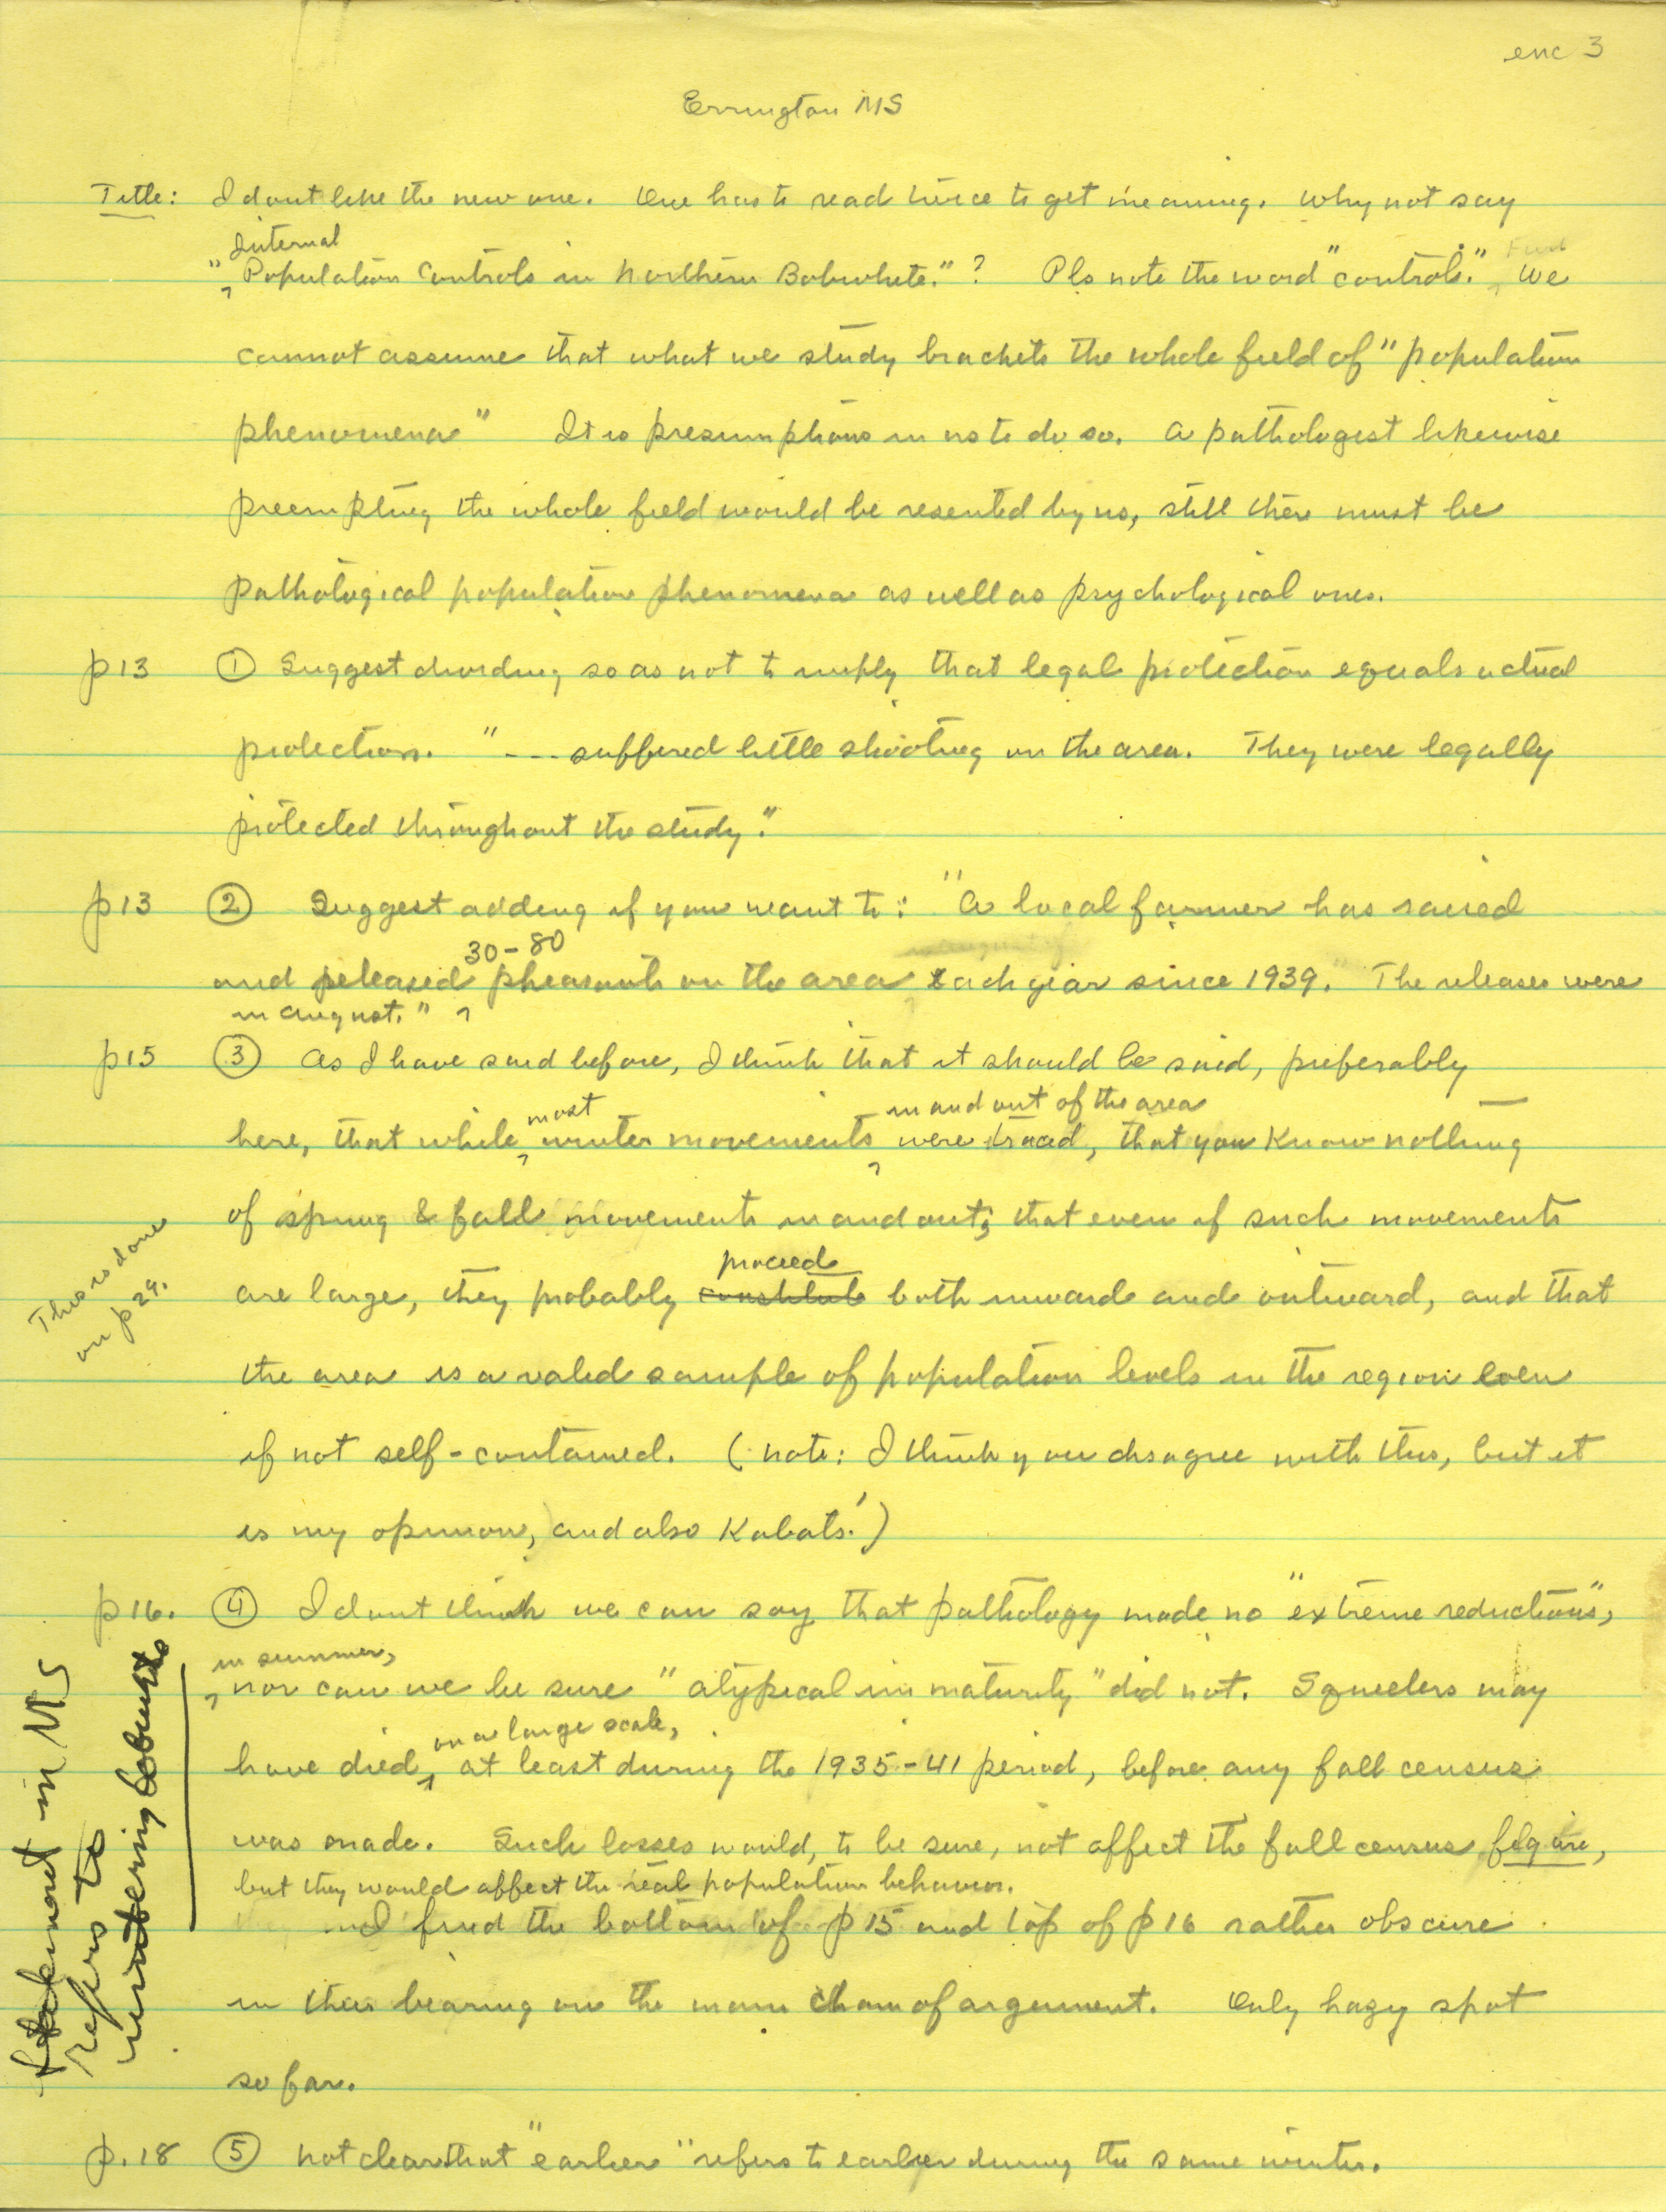 enc 3
Errington MS
Title: I dont like the new one. One has to read twice to get meaning. Why not say
Internal
"Population Controls in Northern Bobwhite."? Pls note the word "controls." We
cannot assume that what we study brackets the whole field of "population
phenomena" It is presumptious in us to do so. A pathologist likewise
preempting the whole field would be resented by us, still there must be
pathological population phenomena as well as psychological ones.
p 13 ① Suggest dividing so as not to imply that legal protection equals actual
protection. "--- suffered little shooting on the area. They were legally
protected throughout the study."
p 13 ② Suggest adding if you want to: "A local farmer has raised
30-80
and released pheasants on the area each year since 1939. The releases were
in August."
p 15 ③ As I have said before, I think that it should be said, preferably
most in and out of the area
here, that while winter movements were traced, that you know nothing
of spring & fall movements in and out; that even if such movements
proceed
are large, they probably constitute both inward and outward, and that
This is done
on p 29.
the area is a valid sample of population levels in the region even
if not self-contained. (note: I think you disagree with this, but it
is my opinion, and also Kabats'.)
p 16. ④ I dont think we can say that pathology made no "extreme reductions",
in summer,
nor can we be sure "atypical immaturity" did not. Squeelers may
on a large scale,
have died, at least during the 1935-41 period, before any fall census
was made. Such losses would, to be sure, not affect the fall census figure,
but they would affect the real population behavior.
I find the bottom of p 15 and top of p 16 rather obscure
in their bearing on the main chain of argument. Only hazy spot
so far.
in MS
refers to
wintering
p. 18 ⑤ Not clear that "earlier" refers to earlier during the same winter.